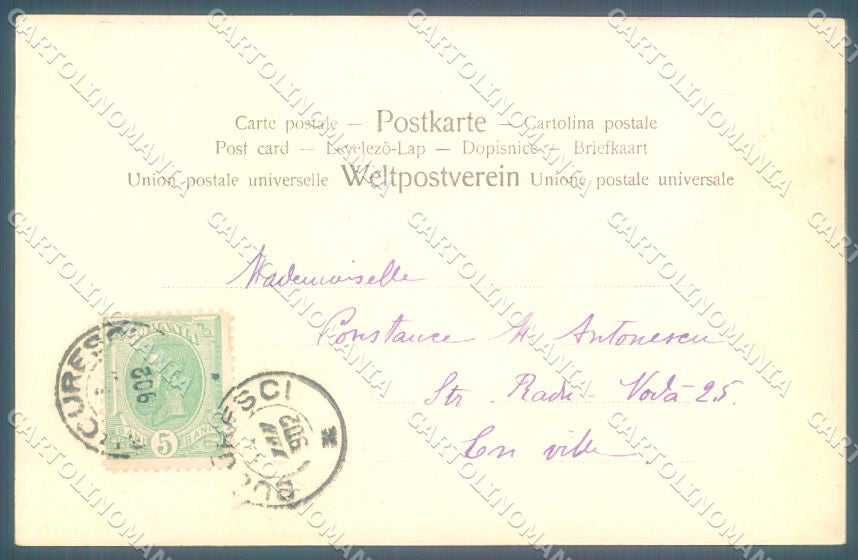 Carte postale — Postkarte — Cartolina postale
Post card — Levelezõ-Lap — Dopisnice — Briefkaart
Union postale universelle Weltpostverein Unione postale universale
Mademoiselle
Constance M Antonescu
Str. Radu Vodă 25.
En ville
ROMANIA
BANI 5 BANI
BUCURESCI
902
BUCURESCI
902
CARTOLINOMANIA